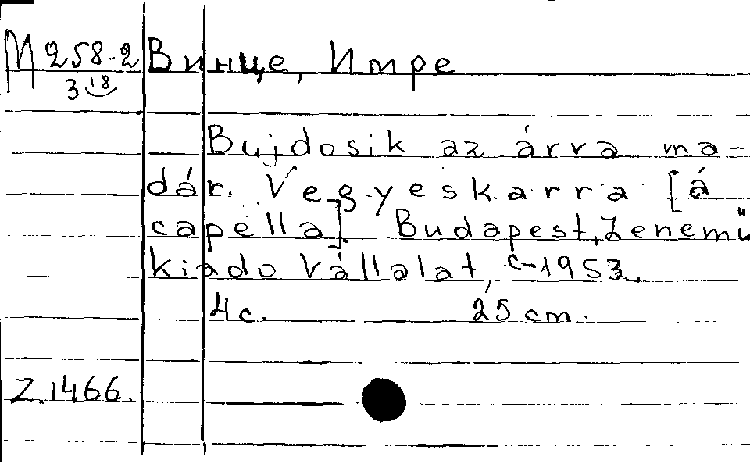 М 258-2 Винце, Имре
3 18
Bujdosik az árva ma-
dár. Vegyeskarra [á
capella]. Budapest, Zenemű
kiado Vállalat, c-1953.
4 с. 25 cm.
Z.1466.